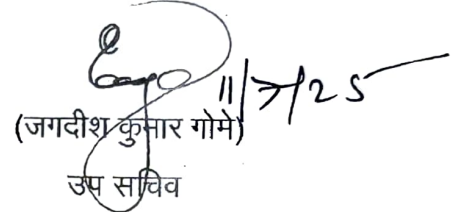 11/7/25
(जगदीश कुमार गोमे)
उप सचिव